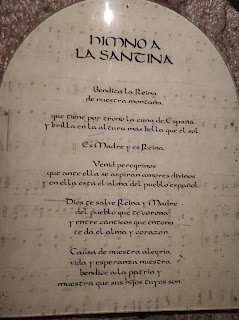 HIMNO A
LA SANTINA
Bendita la Reina
de nuestra montaña,
que tiene por trono la cuna de España
y brilla en la altura mas bella que el sol.
Es Madre y es Reina.
Venid peregrinos
que ante ella se aspiran amores divinos
y en ella está el alma del pueblo español.
Dios te salve Reina y Madre
del pueblo que te corona
y entre cánticos que entona
te da el alma y corazón
Causa de nuestra alegría
vida y esperanza nuestra
bendice a la patria y
muestra que sus hijos tuyos son